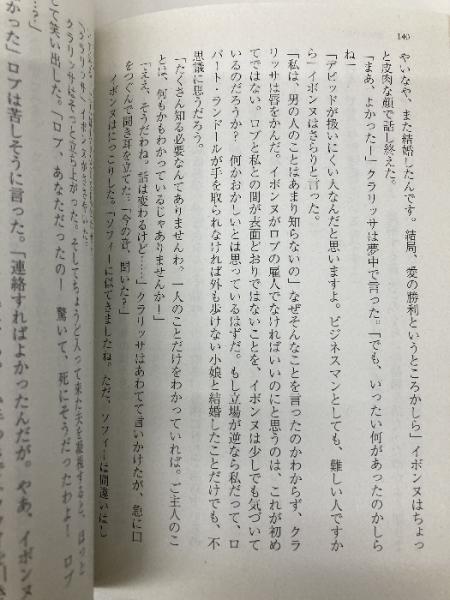 140
やいなや、また結婚したんです。結局、愛の勝利というところかしら」イボンヌはちょっ
と皮肉な顔で話し終えた。
「まあ、よかった！」クラリッサは夢中で言った。「でも、いったい何があったのかしら
ね」
「デビッドが扱いにくい人なんだと思いますよ。ビジネスマンとしても、難しい人ですか
ら」イボンヌはさらりと言った。
「私は、男の人のことはあまり知らないの」なぜそんなことを言ったのかわからず、クラ
リッサは唇をかんだ。イボンヌがロブの雇人でなければいいのにと思うのは、これが初め
てではない。ロブと私との間が表面どおりではないことを、イボンヌは少しでも気づいて
いるのだろうか？　何かおかしいとは思っているはずだ。もし立場が逆なら私だって、ロ
バート・ランドールが手を取られなければ外も歩けない小娘と結婚したことだけでも、不
思議に思うだろう。
「たくさん知る必要なんてありませんわ。一人のことだけをわかっていれば。ご主人のこ
とは、何もかもわかっているじゃありませんか！」
「ええ、そうだわね。話は変わるけど……」クラリッサはあわてて言いかけたが、急に口
をつぐんで聞き耳を立てた。「今の音、聞いた？」
イボンヌはにっこりした。「ソフィーに似てきましたね。ただ、ソフィーは間違いはし
クラリッサはそっと立ち上がった。そしてちょうど入って来た夫を凝視すると、ほっと
して笑い出した。「ロブ、あなただったの！　驚いて、死にそうだったわよ！　ロブ
……？」
かった」ロブは苦しそうに言った。「連絡すればよかったんだが。やあ、イボンヌ